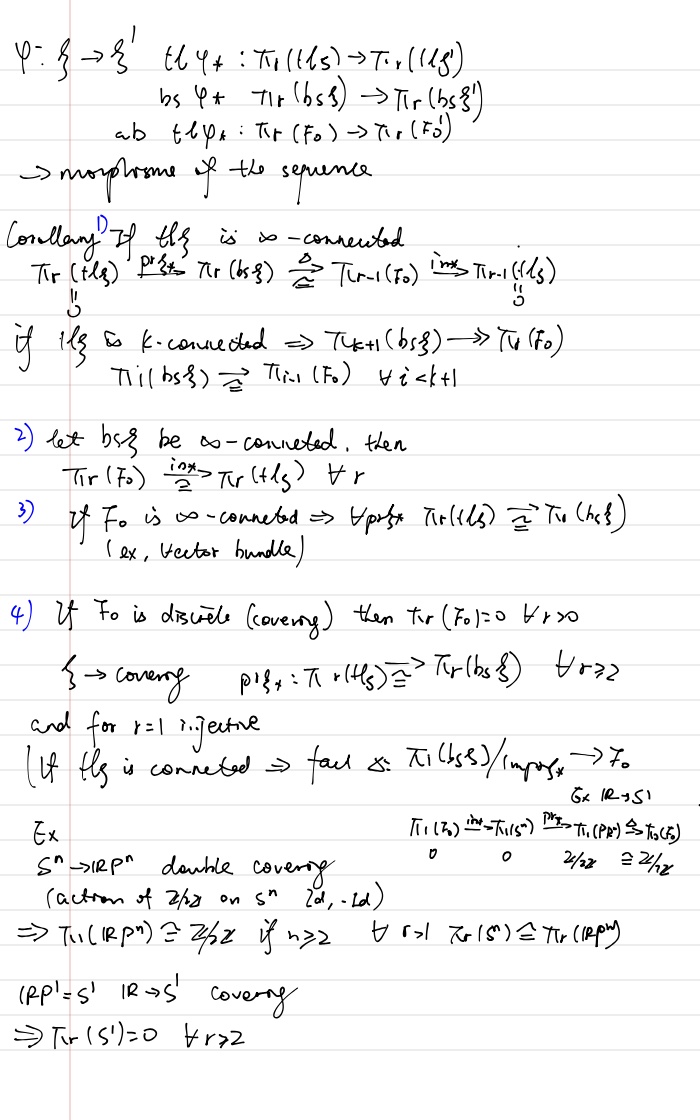 φ: ξ → ξ' tl φ* : π₁(tlξ) → πr(tlξ')
bs φ* πr(bsξ) → πr(bsξ')
ab tlφ* : πr(F₀) → πr(F₀')
→ morphisme of the sequence
Corollary 1) If tlξ is ∞-connected
πr(tlξ) —prξ*→ πr(bsξ) —Δ→≅ πr-1(F₀) —in*→ πr-1(tlξ)
= 0 = 0
if tlξ is k-connected ⇒ πk+1(bsξ) ↠ πk(F₀)
πi(bsξ) →≅ πi-1(F₀) ∀ i < k+1
2) let bsξ be ∞-conneted, then
πr(F₀) —in*→≅ πr(tlξ) ∀ r
3) If F₀ is ∞-conneted ⇒ ∀prξ* πr(tlξ) →≅ πr(bsξ)
(ex, Vector bundle)
4) If F₀ is discrete (covering) then πr(F₀)=0 ∀r>0
ξ → covering prξ* : πr(tlξ) →≅ πr(bsξ) ∀r≥2
and for r=1 injective
(If tlξ is conneted ⇒ fact Δ: π₁(bsξ)/Im prξ* → F₀
Ex ℝ→S¹
Ex
π₁(F₀) —in*→ π₁(Sⁿ) —pr*→ π₁(ℝPⁿ) —Δ→ π₀(F₀)
Sⁿ → ℝPⁿ double covering
0 0 ℤ/2ℤ ≅ ℤ/2ℤ
(action of ℤ/2ℤ on Sⁿ Id, -Id)
⇒ π₁(ℝPⁿ) ≅ ℤ/2ℤ if n≥2 ∀ r>1 πr(Sⁿ) ≅ πr(ℝPⁿ)
ℝP¹=S¹ ℝ→S¹ covering
⇒ πr(S¹)=0 ∀r≥2